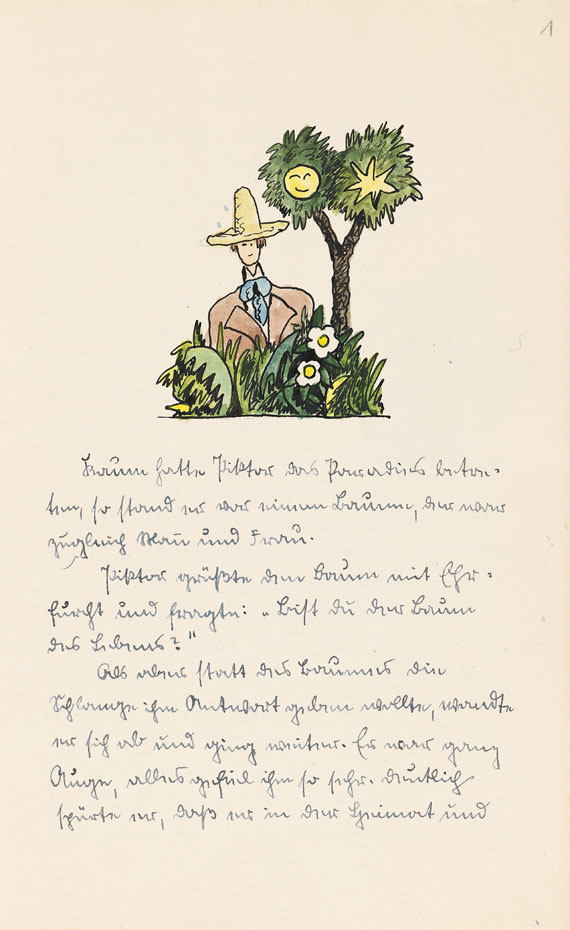 1
Kaum hatte Piktor das Paradies betre-
ten, so stand er vor einem Baume, der war
zugleich Mann und Frau.
Piktor grüßte den Baum mit Ehr-
furcht und fragte: „Bist du der Baum
des Lebens?"
Als aber statt des Baumes die
Schlange ihm Antwort geben wollte, wandte
er sich ab und ging weiter. Er war ganz
Auge, alles gefiel ihm so sehr. Deutlich
spürte er, daß er in der Heimat und